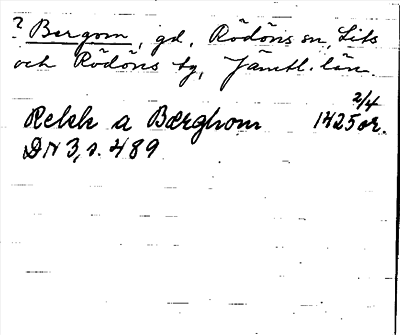 ? Bergom, gd, Rödöns sn, Lits
och Rödöns tg, Jämtl. län.
2/4
Rekk a Bærghom 1425 or.
DN 3, s. 489